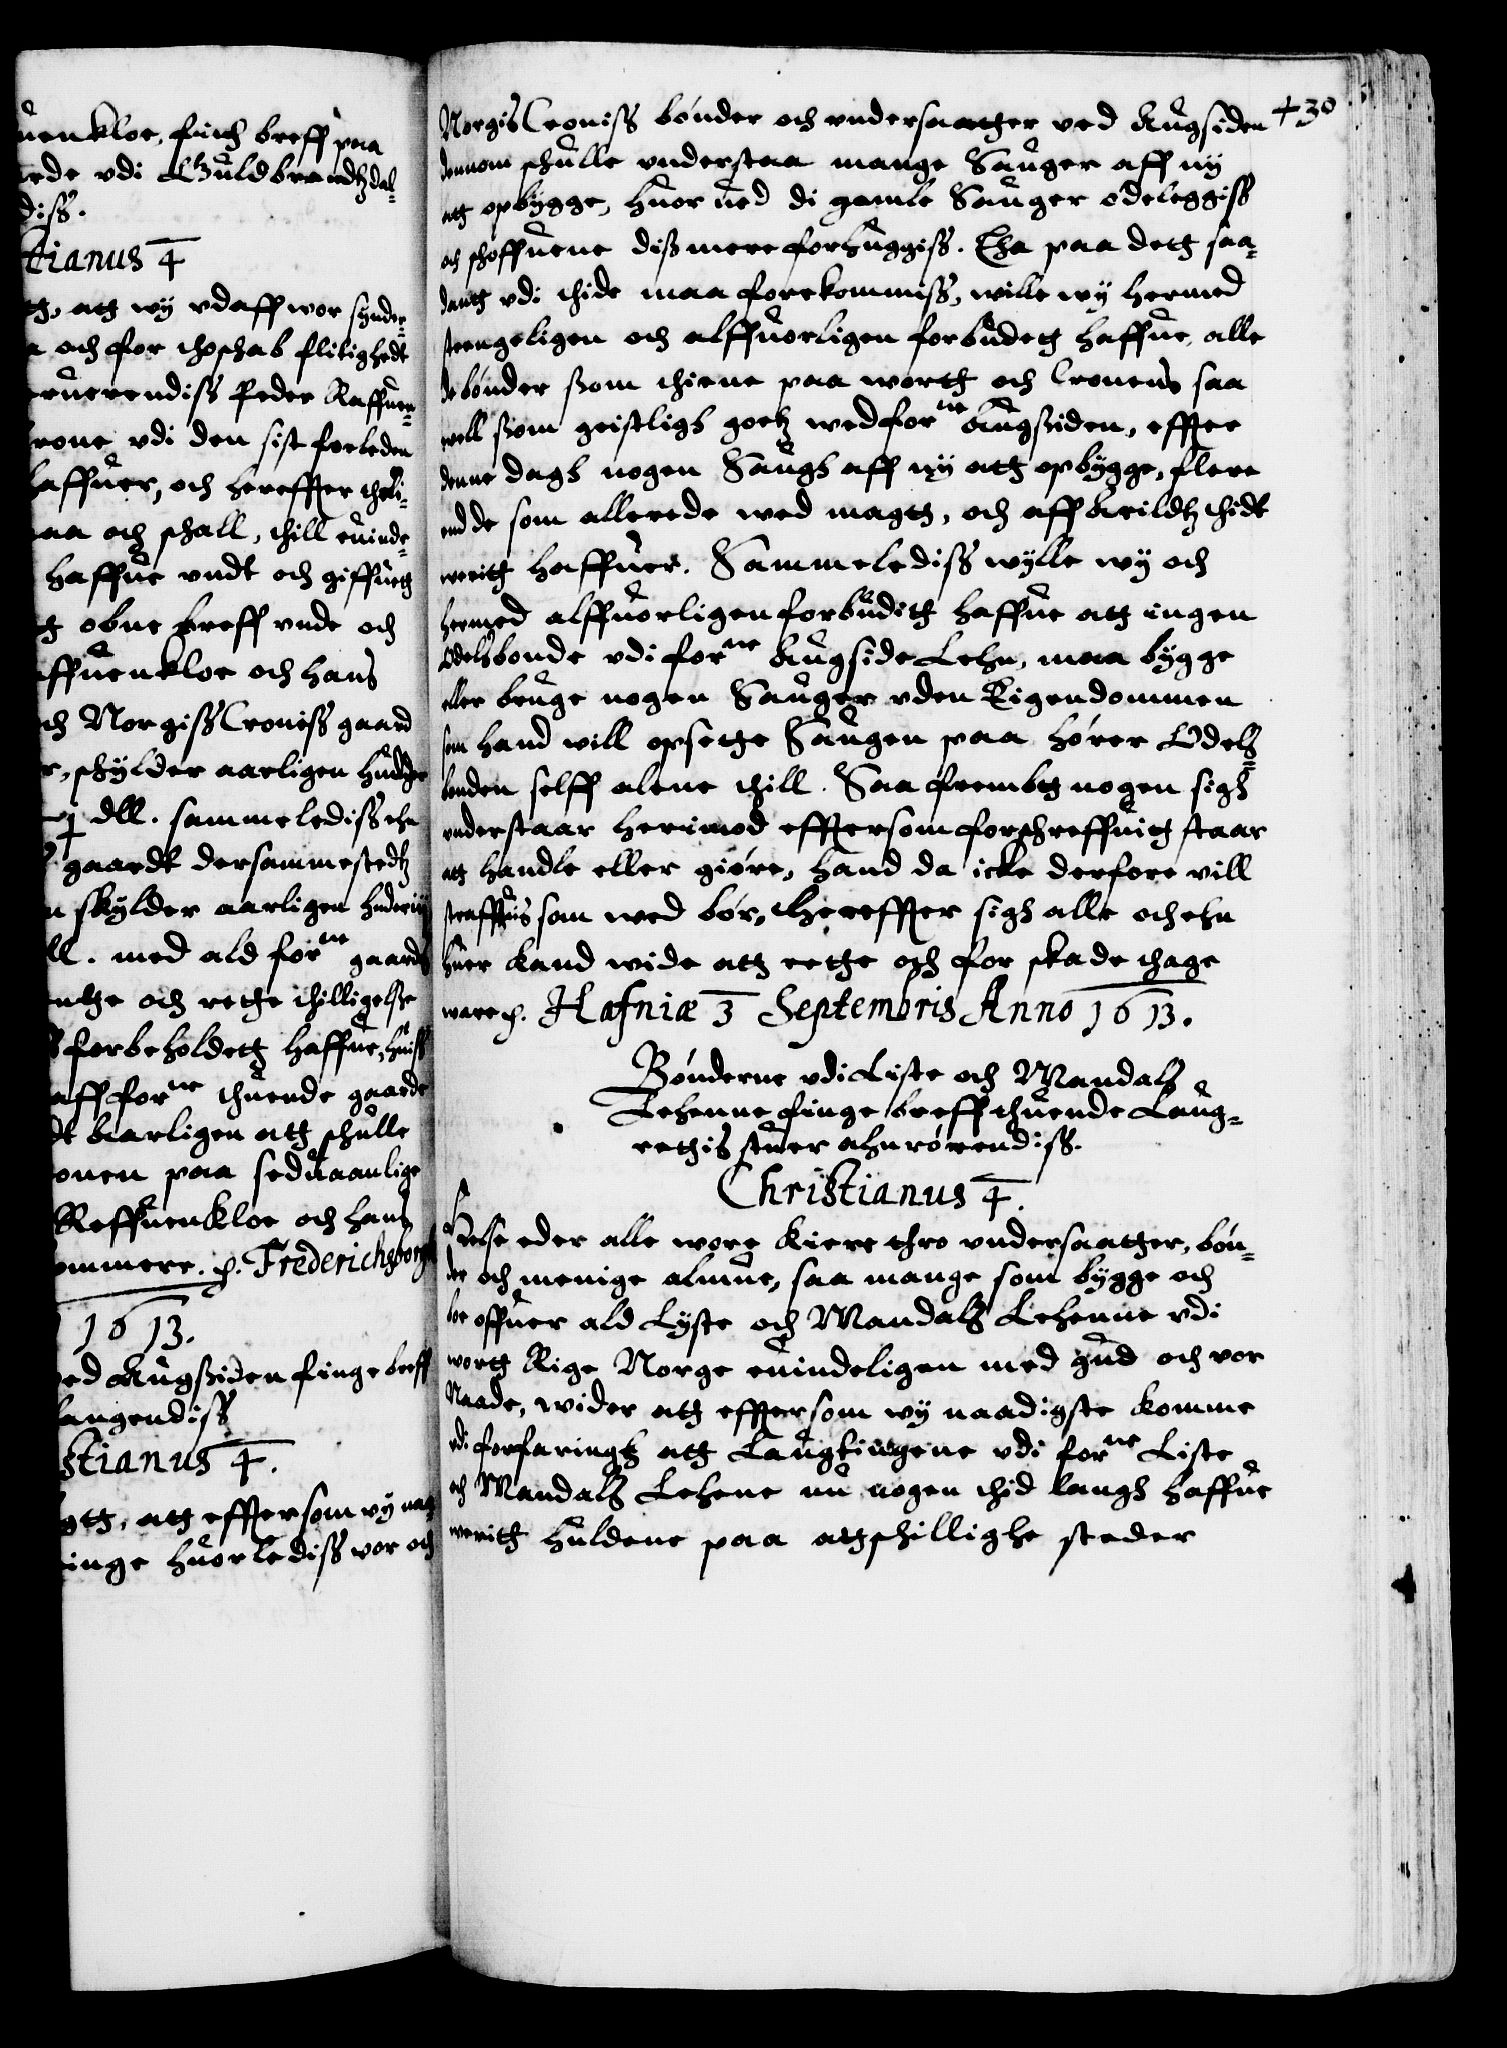 uenkloe, fich breff paa
rde vdi Guldbrandtzdal-
diss.
tianus 4
tg, att wy vdaff wor synder-
och for throschab flitighedt
eruerendiss Peder Raffuen
Crone vdi den sist forleden
haffuer, och hereffter theli-
maa och schall, thill euinde-
haffue vndt och giffuett
obne breff vnde och
ffuenkloe och hans
ch Norgiss Croniss gaard
r, schylder aarligen huder
4 dll. sammelediss ehn
gaardt dersammestedtz
n skylder aarligen huder iij
ll. med ald forne gaards
entthe och rette thilligelsse
forbeholdett haffue, huiss
aff forne thuende gaarde
dt aarligen att schulle
onen paa seduaanlige
Reffuenkloe och hans
ommere. p. Frederichsborgh
1613.
ed Augssiden finge breff
langendiss
stianus 4.
gtt, att effttersom wy naa
inge huorlediss vor och
+30
Norgis Croniss bønder och vndersaatter ved Augsiden
dennom schulle vnderstaa mange Sauger aff ny
att opbygge, huor ued di gamle Sauger ødeleggiss
och schoffuene diss mere forhuggiss. Tha paa dett saa-
dantt vdi thide maa forekommiss, wille wy hermed
strengeligen och alffuorligen forbudett haffue, alle
de bønder ssom thiene paa wortt och Cronens saa
well ssom geistligh goetz wed forne Augssiden, effter
denne dagh nogen Saugh aff ny att opbygge, flere
end de som allerede wed magtt, och aff Arildtz thidt
weritt haffuer. Sammelediss wylle wy och
hermed alffuorligen forbuditt haffue att ingen
Odelsbonde vdi forne Augside Lehn, maa bygge
eller bruge nogen Sauger vden Eigendommen
som hand will opsette Saugen paa hører Odels
bonden selff alene thill. Saa frembt nogen sigh
vnderstaar herimod effttersom forschreffuitt staar
att handle eller giøre, hand da icke derfore vill
straffuis som wed bør, Hereffter sigh alle och ehn
huer kand wide att rette och for skade thage
ware p. Hafniæ 3 Septembris Anno 1613.
Bønderne vdi Liste och Mandals
Lehenne finge breff thuende Laug-
rethis stuer ahnrørendiss.
Christianus 4.
Helse eder alle wore kiere thro vndersaatter, bøn-
der och menige almue, saa mange som bygge och
boe offuer ald Lyste och Mandals Lehenne vdi
wortt Rige Norge euindeligen med gud och vor
Naade, wider att efftersom wy naadigste komme
vdi forfaringh att Laugtingene vdi forne Liste
och Mandals Lehene nu nogen thid langh haffue
weritt huldene paa attschillighe steder